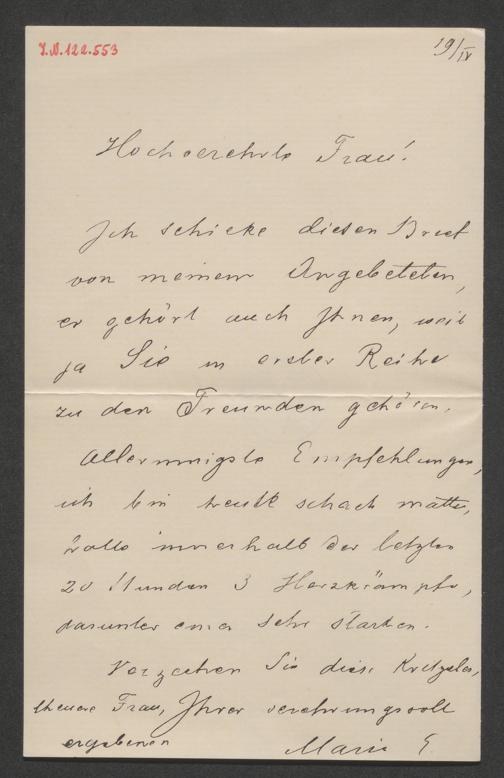 I.N. 122.553
19/IV
Hochverehrte Frau!
Ich schicke diesen Brief
von meinem Angebeteten,
er gehört auch Ihnen, weil
ja Sie in erster Reihe
zu den Freunden gehören.
Allerinnigste Empfehlungen,
ich bin heute schach matt,
hatte innerhalb der letzten
20 Stunden 3 Herzkrämpfe,
darunter einen sehr starken.
Verzeihen Sie diese Kritzelei,
theuere Frau, Ihrer verehrungsvoll
ergebenen Marie E.